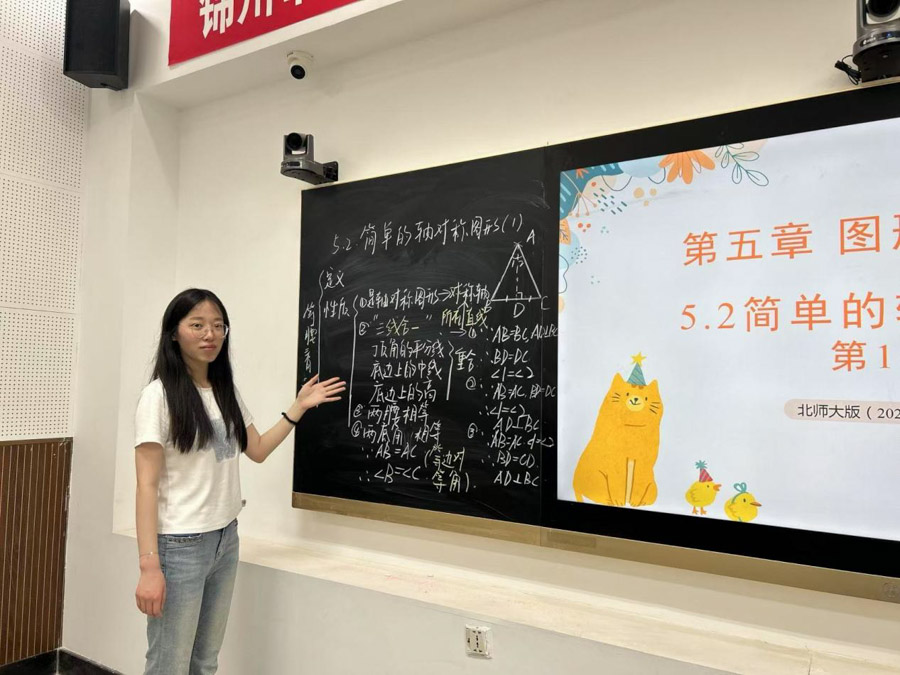 锦州
5.2 简单的轴对称图形(1)
A
D
C
定义
性质
①是轴对称图形→对称轴
所在直线
②"三线合一"
顶角的平分线
底边上的中线
底边上的高
重合
③两腰相等
④两底角相等
∵AB=AC (等边对
∴∠B=∠C 等角)
∴BD=DC
∠1=∠2
②∵
AB=AC, BD=DC
∴∠1=∠2
AD⊥BC
③∵
∴BD=CD
AD⊥BC
第五章 图形
5.2简单的
第1
北师大版(202